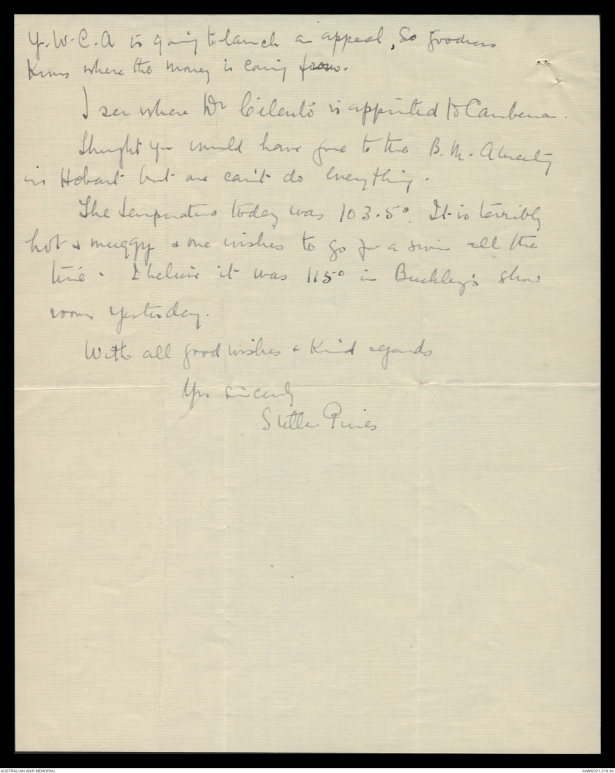 Y.W.C.A is going to launch an appeal, So goodness
knows where the money is coming from.
I see where Dr Cilento is appointed to Canberra.
Thought you would have gone to the B.M.A Meeting
in Hobart but one can't do everything.
The temperature today was 103.5° It is terribly
hot & muggy & one wishes to go for a swim all the
time. I believe it was 115° in Buckley's show
room yesterday.
With all good wishes & Kind regards
Yrs sincerely
Stella Pines
AUSTRALIAN WAR MEMORIAL